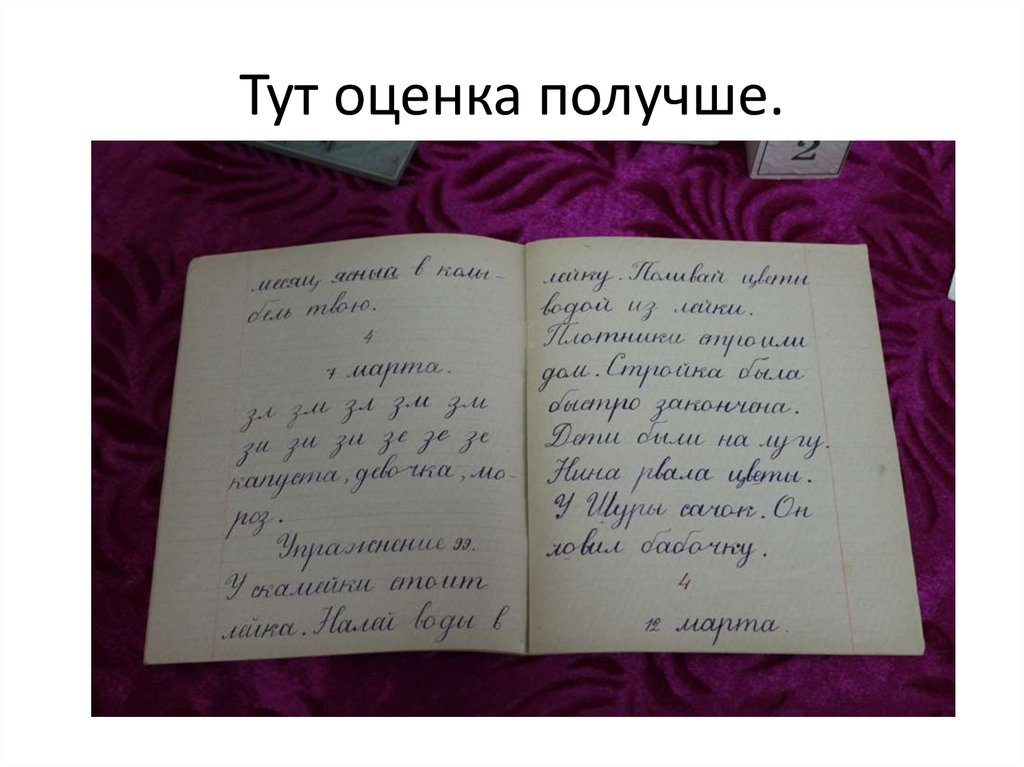 Тут оценка получше.
2
месяц ясный в колы-
бель твою.
4
7 марта.
зл зм зл зм зм
зи зи зи зе зе зе
капуста, девочка, мо-
роз.
Упражнение 99.
У скамейки стоит
лейка. Налей воды в
лейку. Поливай цветы
водой из лейки.
Плотники строили
дом. Стройка была
быстро закончена.
Дети были на лугу.
Нина рвала цветы.
У Шуры сачок. Он
ловил бабочку.
4
12 марта.